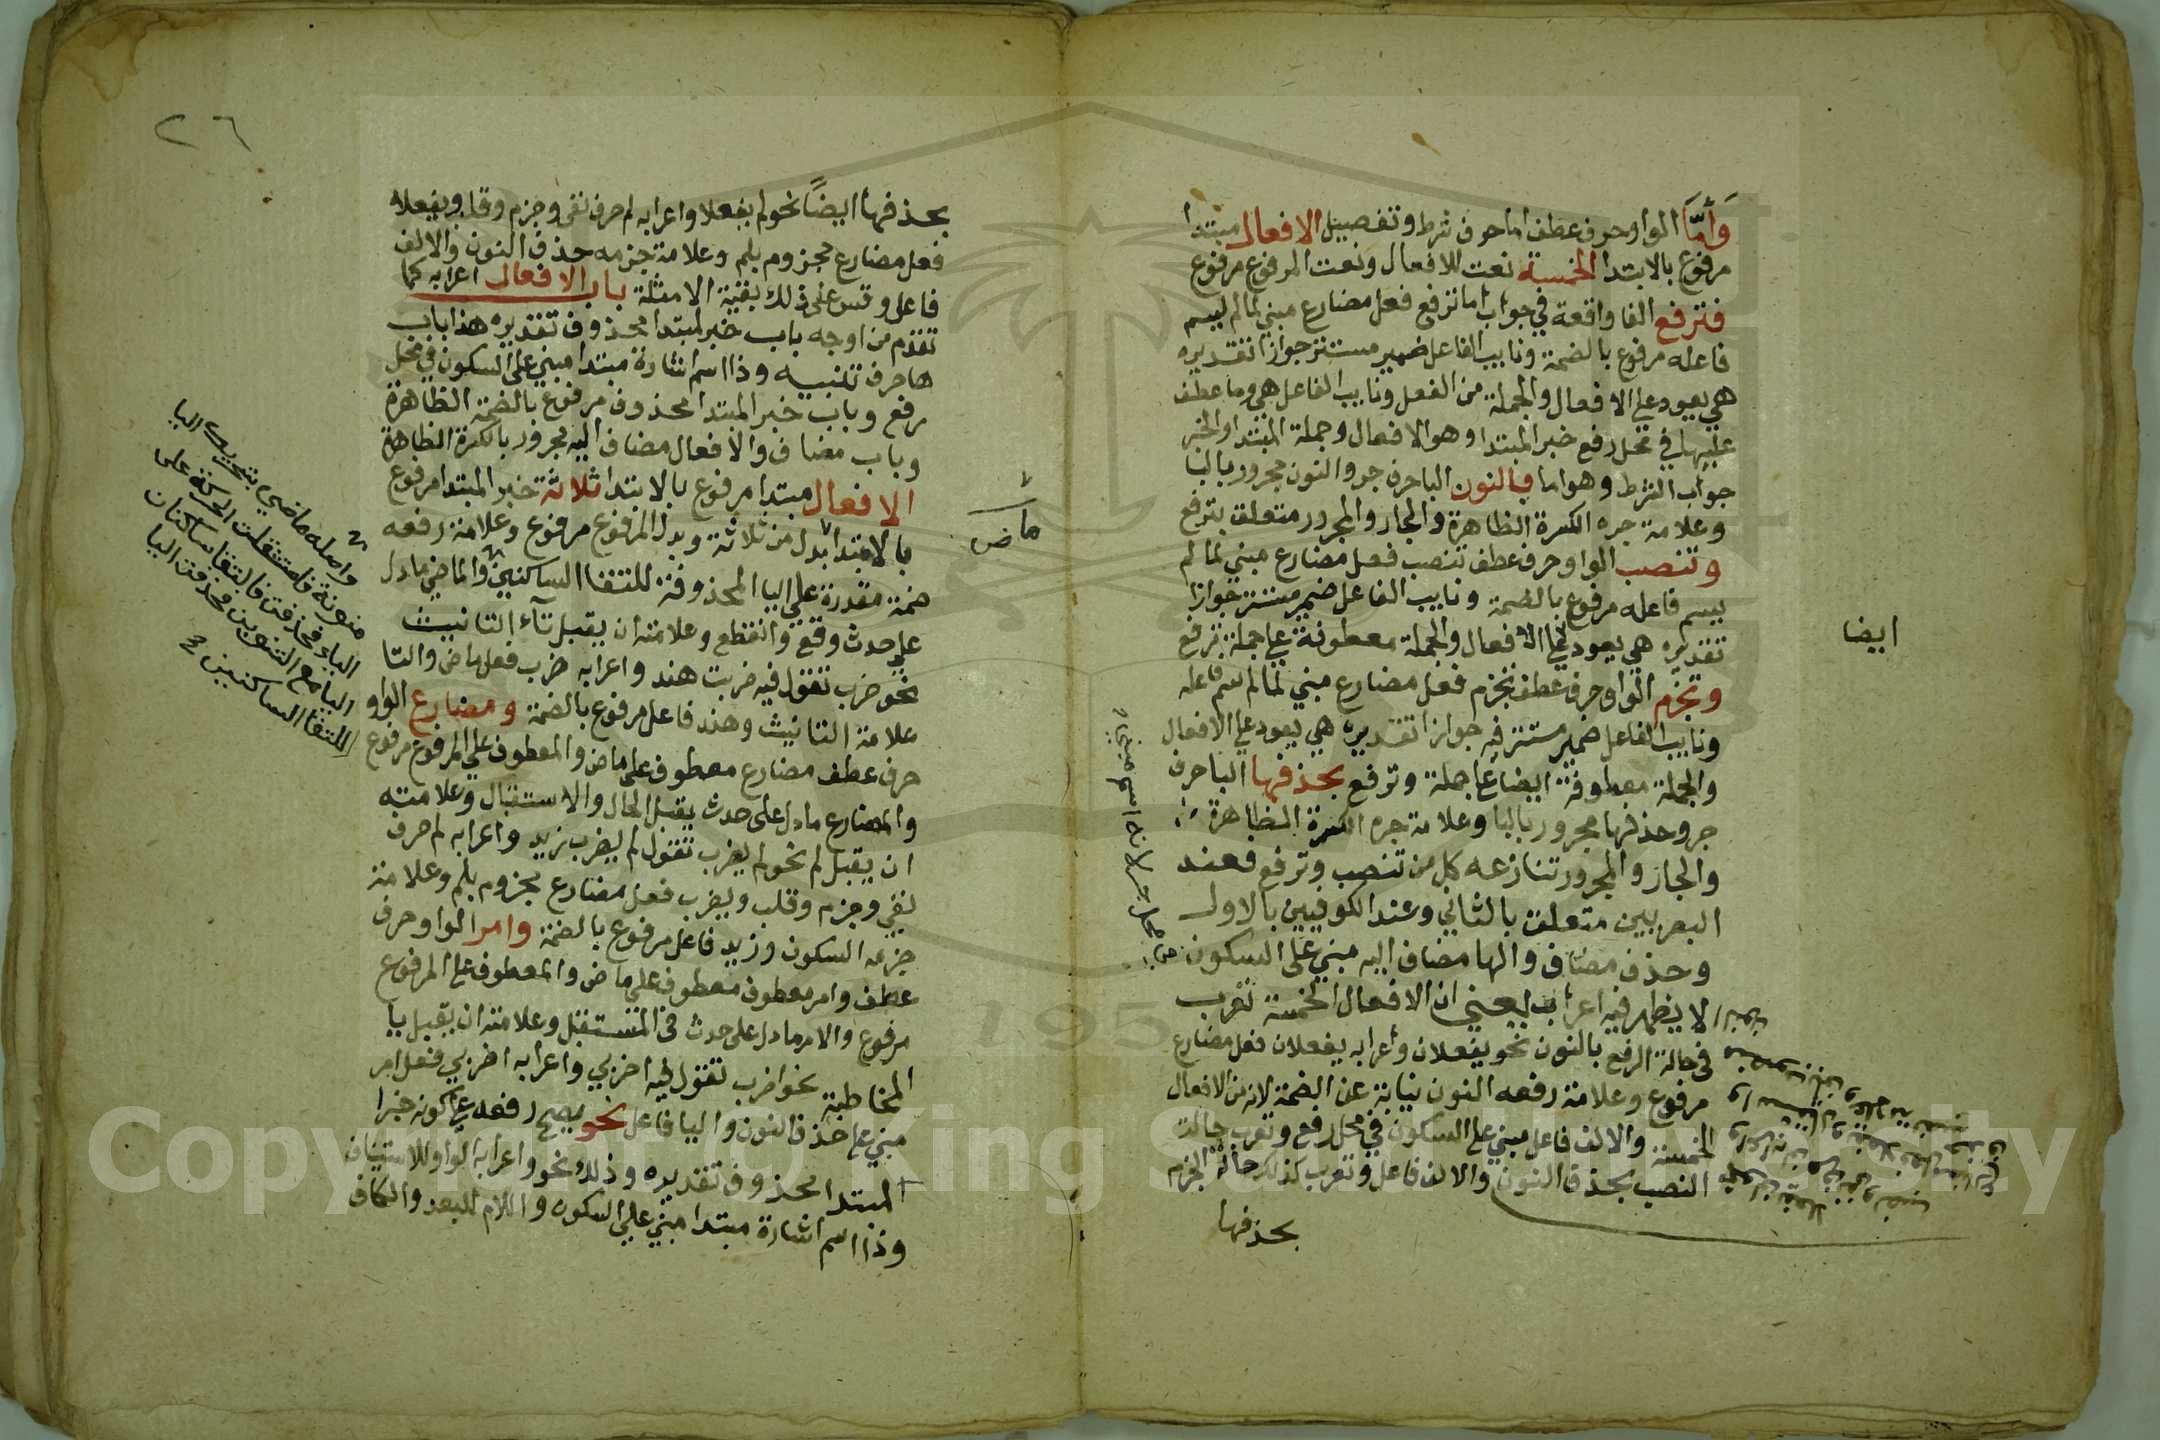 وَأَمَّا الواو حرف عطف اما حرف شرط وتفصيل الافعال مبتدا
مرفوع بالابتدا الخمسة نعت للافعال ونعت المرفوع مرفوع
فترفع الفا واقعة في جواب اما ترفع فعل مضارع مبني لما لم يسم
فاعله مرفوع بالضمة ونايب الفاعل ضمير مستتر جوازا تقديره
هي يعود علي الافعال والجملة من الفعل ونايب الفاعل هي وما عطف
عليها في محل رفع خبر المبتدا وهو الافعال وجملة المبتدا والخبر
جواب الشرط وهو اما فبالنون الباحرف جر والنون مجرور بالبا
وعلامة جره الكسرة الظاهرة والجار والمجرور متعلق بترفع
وتنصب الواو حرف عطف تنصب فعل مضارع مبني لما لم
يسم فاعله مرفوع بالضمة ونايب الفاعل ضمير مستتر جوازا
تقديره هي يعود علي الافعال والجملة معطوفة علي جملة ترفع
وتجزم الواو حرف عطف تجزم فعل مضارع مبني لما لم يسم فاعله
ونايب الفاعل ضمير مستتر فيه جوازا تقديره هي يعود علي الافعال
والجملة معطوفة ايضا علي جملة وترفع بحذفها الباحرف
جر وحذفها مجرور بالبا وعلامة جره الكسرة الظاهرة
والجار والمجرور تنازعه كل من تنصب وترفع فعند
البصريين متعلق بالثاني وعند الكوفيين بالاول
وحذف مضاف والها مضاف اليه مبني علي السكون
لا يظهر فيه اعراب يعني ان الافعال الخمسة تعرب
في حالة الرفع بالنون نحو يفعلان وأعرابه يفعلان فعل مضارع
مرفوع وعلامة رفعه النون نيابة عن الضمة لانه من الافعال
الخمسة والالف فاعل مبني علي السكون في محل رفع وتعرب حالت
النصب بحذف النون والالف فاعل وتعرب كذلك حالة الجزم
بحذفها
ايضا
٢٦
بحذفها ايضاً نحو لم يفعلا واعرابه لم حرف نفي وجزم وقلب ويفعلا
فعل مضارع مجزوم بلم وعلامة جزمه حذف النون والالف
فاعل وقس علي ذلك بقية الامثلة باب الافعال اعرابه كما
تقدم من اوجه باب خبر لمبتدا محذوف تقديره هذا باب
ها حرف تنبيه وذا اسم اشارة مبتدا مبني علي السكون في محل
رفع وباب خبر المبتدا محذوف مرفوع بالضمة الظاهرة
وباب مضاف والافعال مضاف اليه مجرور بالكسرة الظاهرة
الافعال مبتدا مرفوع بالابتدا ثلاثة خبر المبتدا مرفوع
بالابتدا بدل من ثلاثة وبدل المرفوع مرفوع وعلامة رفعه
ضمة مقدرة علي اليا المحذوفة للتقا الساكنين والماضي ما دل
علي حدث وقع وانقطع وعلامته ان يقبل تآء التانيث
نحو ضرب تقول فيه ضربت هند واعرابه ضرب فعل ماض والتا
علامة التانيث وهند فاعل مرفوع بالضمة ومضارع الواو
حرف عطف مضارع معطوف علي ماض والمعطوف علي المرفوع مرفوع
والمضارع ما دل علي حدث يقبل الحال والاستقبال وعلامته
ان يقبل لم نحو لم يضرب تقول لم يضرب زيد واعرابه لم حرف
نفي وجزم وقلب ويضرب فعل مضارع مجزوم بلم وعلامة
جزمه السكون وزيد فاعل مرفوع بالضمة وامر الواو حرف
عطف وامر معطوف معطوف علي ماض والمعطوف علي المرفوع
مرفوع والامر ما دل علي حدث في المستقبل وعلامته ان يقبل يا
المخاطبة نحو اضرب تقول فيه اضربي واعرابه اضربي فعل امر
مبني علي حذف النون واليا فاعل نحو يصح رفعه علي كونه خبرا
المبتدا محذوف تقديره وذلك نحو واعرابه الواو للاستيناف
وذا اسم اشارة مبتدا مبني علي السكون واللام للبعد والكاف
ماض
واصله ماضي بتحريك اليا
منونة فاستثقلت الحركة علي
الياء فحذفت فالتقا ساكنان
اليا مع التنوين فحذفت اليا
للتقا الساكنين
Copyright © King Saud University
195